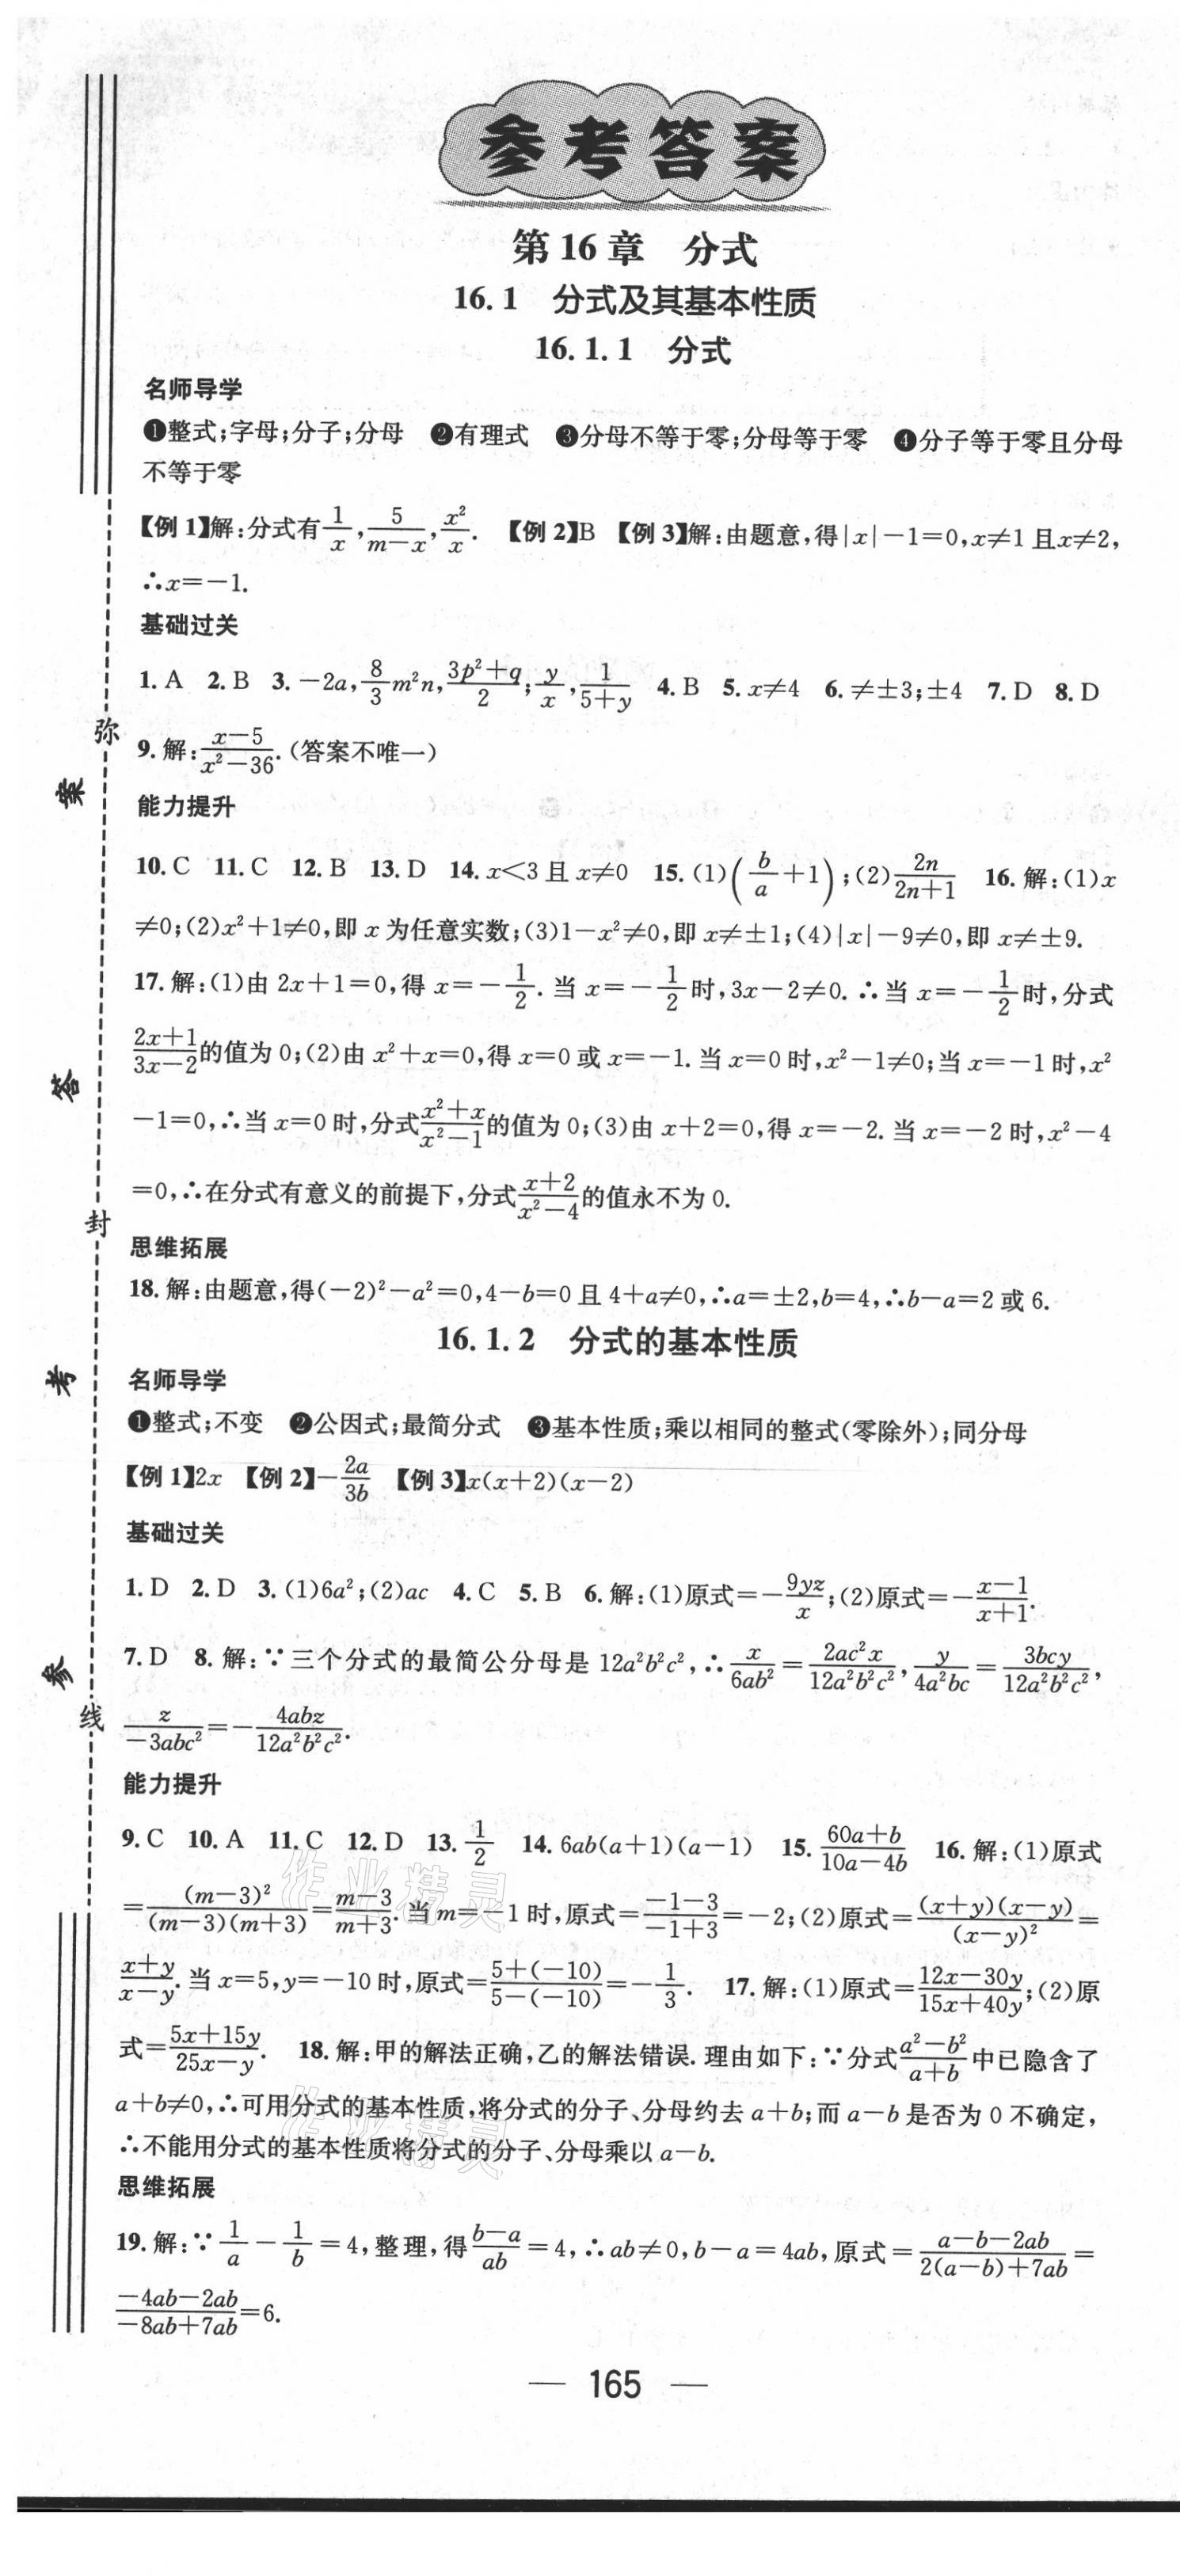 参考答案
第 16 章　分式
16.1　分式及其基本性质
16.1.1　分式
名师导学
❶整式;字母;分子;分母　❷有理式　❸分母不等于零;分母等于零　❹分子等于零且分母
不等于零
【例 1】解:分式有1/x,5/(m-x),x²/x.　【例 2】B　【例 3】解:由题意,得|x|-1=0,x≠1 且x≠2,
∴x=-1.
基础过关
1. A　2. B　3. -2a,8/3 m²n,(3p²+q)/2;y/x,1/(5+y)　4. B　5. x≠4　6. ≠±3;±4　7. D　8. D
9. 解:(x-5)/(x²-36).(答案不唯一)
能力提升
10. C　11. C　12. B　13. D　14. x<3 且 x≠0　15. (1)(b/a+1);(2)2n/(2n+1)　16. 解:(1)x
≠0;(2)x²+1≠0,即 x 为任意实数;(3)1-x²≠0,即 x≠±1;(4)|x|-9≠0,即 x≠±9.
17. 解:(1)由 2x+1=0,得 x=-1/2. 当 x=-1/2时,3x-2≠0. ∴当 x=-1/2时,分式
(2x+1)/(3x-2)的值为 0;(2)由 x²+x=0,得 x=0 或 x=-1. 当 x=0 时,x²-1≠0;当 x=-1 时,x²
-1=0,∴当 x=0 时,分式(x²+x)/(x²-1)的值为 0;(3)由 x+2=0,得 x=-2. 当 x=-2 时,x²-4
=0,∴在分式有意义的前提下,分式(x+2)/(x²-4)的值永不为 0.
思维拓展
18. 解:由题意,得(-2)²-a²=0,4-b=0 且 4+a≠0,∴a=±2,b=4,∴b-a=2 或 6.
16.1.2　分式的基本性质
名师导学
❶整式;不变　❷公因式;最简分式　❸基本性质;乘以相同的整式(零除外);同分母
【例 1】2x　【例 2】-2a/3b　【例 3】x(x+2)(x-2)
基础过关
1. D　2. D　3. (1)6a²;(2)ac　4. C　5. B　6. 解:(1)原式=-9yz/x;(2)原式=-(x-1)/(x+1).
7. D　8. 解:∵三个分式的最简公分母是 12a²b²c²,∴x/6ab²=2ac²x/12a²b²c²,y/4a²bc=3bcy/12a²b²c²,
z/-3abc²=-4abz/12a²b²c².
能力提升
9. C　10. A　11. C　12. D　13. 1/2　14. 6ab(a+1)(a-1)　15. (60a+b)/(10a-4b)　16. 解:(1)原式
=(m-3)²/(m-3)(m+3)=(m-3)/(m+3). 当 m=-1 时,原式=(-1-3)/(-1+3)=-2;(2)原式=(x+y)(x-y)/(x-y)²=
(x+y)/(x-y). 当 x=5,y=-10 时,原式=(5+(-10))/(5-(-10))=-1/3.　17. 解:(1)原式=(12x-30y)/(15x+40y);(2)原
式=(5x+15y)/(25x-y).　18. 解:甲的解法正确,乙的解法错误. 理由如下:∵分式(a²-b²)/(a+b)中已隐含了
a+b≠0,∴可用分式的基本性质,将分式的分子、分母约去 a+b;而 a-b 是否为 0 不确定,
∴不能用分式的基本性质将分式的分子、分母乘以 a-b.
思维拓展
19. 解:∵1/a-1/b=4,整理,得(b-a)/ab=4,∴ab≠0,b-a=4ab,原式=(a-b-2ab)/(2(a-b)+7ab)=
(-4ab-2ab)/(-8ab+7ab)=6.
— 165 —
弥
封
线
参考答案
作业精灵
作业精灵